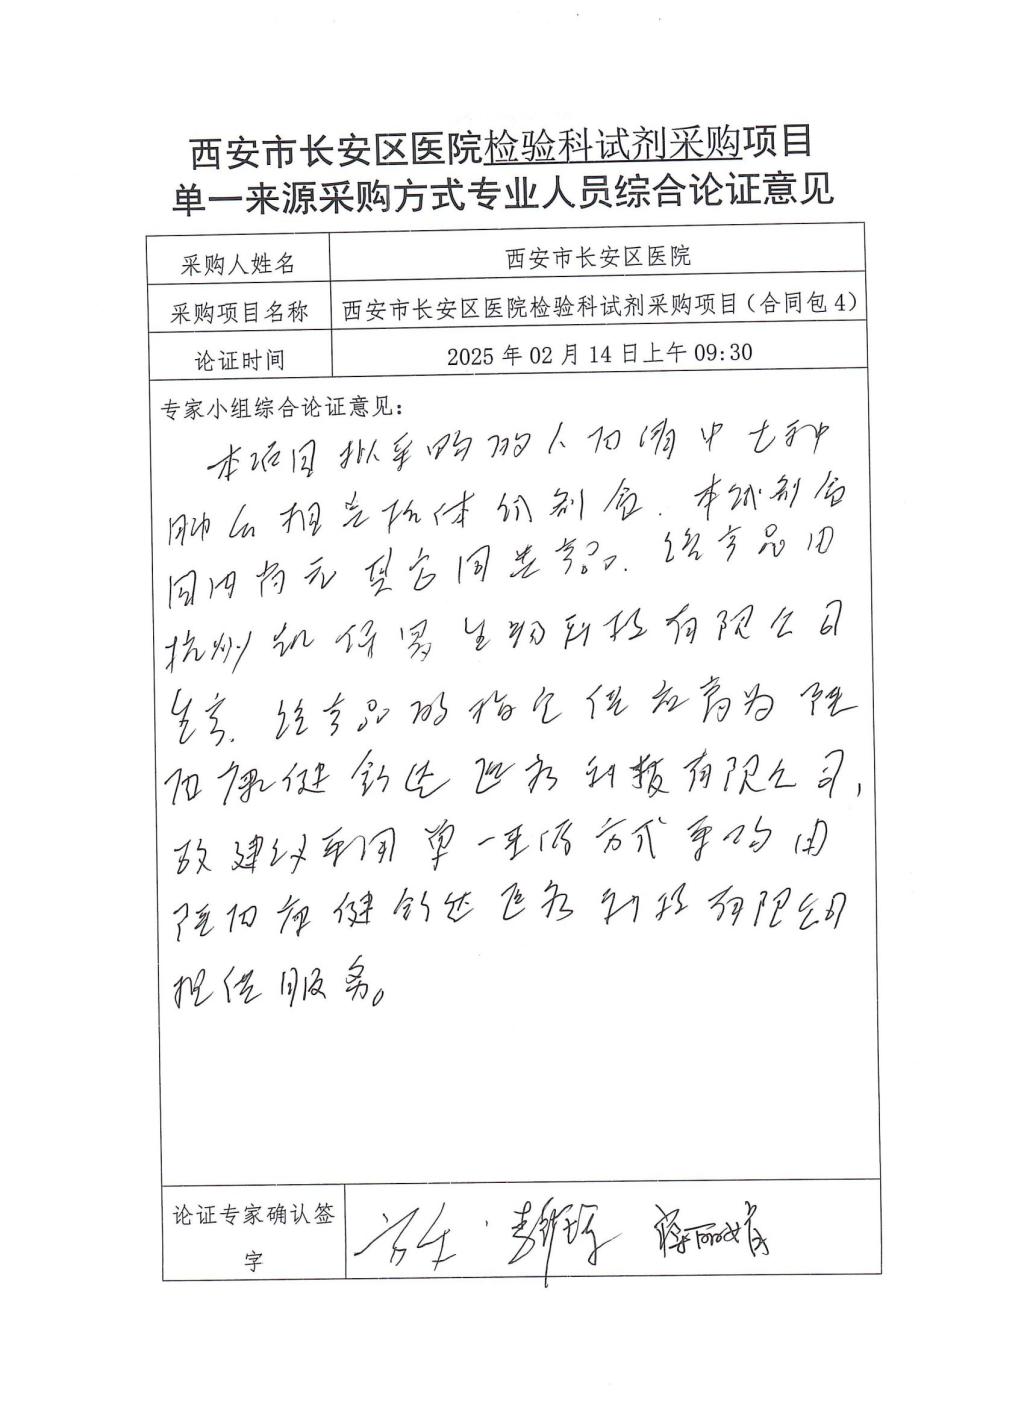 西安市长安区医院检验科试剂采购项目
单一来源采购方式专业人员综合论证意见
采购人姓名 西安市长安区医院
采购项目名称 西安市长安区医院检验科试剂采购项目（合同包4）
论证时间 2025年02月14日上午09:30
专家小组综合论证意见：
本项目拟采购的人血清中七种
肺癌相关抗体 剂盒．本试剂盒
国内尚无其它同类产品．该产品由
杭州凯保罗生物科技有限公司
生产．该产品的指定供应商为陕
西康健 达医药科技有限公司，
故建议采用单一来源方式采购由
陕西康健 达医药科技有限公司
提供服务。
论证专家确认签
字